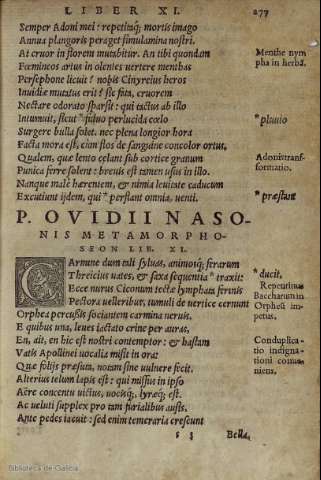 LIBER XI. 277
Semper Adoni mei: repetitaq́; mortis imago
Annua plangoris peraget simulamina nostri.
At cruor in florem mutabitur. An tibi quondam
Fœmineos artus in olentes uertere menthas
Menthe nym
pha in herbã.
Persephone licuit? nobis Cinyreius heros
Inuidiæ mutatus erit? sic fata, cruorem
Nectare odorato sparsit: qui tactus ab illo
Intumuit, sicut fuluo perlucida cœlo
*pluuio
Surgere bulla solet. nec plena longior hora
Facta mora est, cùm flos de sanguine concolor ortus,
Qualem, quæ lento celant sub cortice granum
Adonis trans-
formatio.
Punica ferre solent: breuis est tamen usus in illo.
Nanque malè hærentem, & nimia leuitate caducum
Excutiunt ijdem, qui *perflant omnia, uenti.
*præstant
P. OVIDII NASO-
NIS METAMORPHO-
SEON LIB. XI.
Carmine dum tali syluas, animosq́; ferarum
Threicius uates, & saxa sequentia *traxit:
*ducit.
Ecce nurus Ciconum tectæ lymphata ferinis
Repentinus
Pectora uelleribus, tumuli de uertice cernunt
Baccharum in
Orphea percussis sociantem carmina neruis.
Orpheũ im
petus.
E quibus una, leues iactato crine per auras,
En, ait, en hic est nostri contemptor: & hastam
Conduplica-
tio indigna-
Vatis Apollinei uocalia misit in ora:
tioni conue
niens.
Quæ folijs præsuta, notam sine uulnere fecit.
Alterius telum lapis est: qui missus in ipso
Aëre concentu uictus, uocisq́;, lyræq́; est.
Ac ueluti supplex pro tam furialibus ausis,
Ante pedes iacuit: sed enim temeraria crescunt
s 3 Bella,
Biblioteca de Galicia